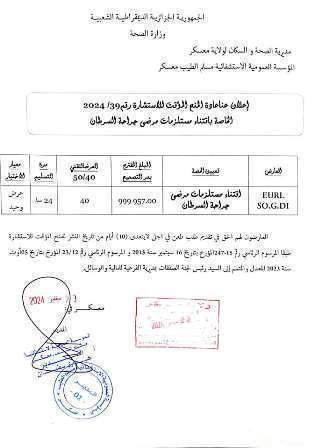 الجمهورية الجزائرية الديمقراطية الشعبية
وزارة الصحة
مديرية الصحة و السكان لولاية معسكر
المؤسسة العمومية الاستشفائية مسلم الطيب معسكر
إعلان عن المنح المؤقت للاستشارة رقم 39/ 2024
الخاصة باقتناء مستلزمات مرضى جراحة السرطان
العارض
تعيين الحصة
المبلغ المقترح بعد التصحيح
العرض التقني 50/40
مدة التسليم
معيار الاختيار
EURL SO.G.DI
اقتناء مستلزمات مرضى جراحة السرطان
999.957.00
40
24 سا
عرض وحيد
العارضون لهم الحق في تقديم طعن في اجل لايتعدى (10) أيام من تاريخ النشر للمنح المؤقت للاستشارة
طبقا المرسوم الرئاسي 247-15 المؤرخ بتاريخ 16 سبتمبر سنة 2015 و المرسوم الرئاسي رقم 23/12 المؤرخ بتاريخ 05 أوت
سنة 2023 المعدل والمتمم إلى السيد رئيس لجنة الصفقات بمديرية الفرعية للمالية والوسائل.
معسكر في
2024
المدير